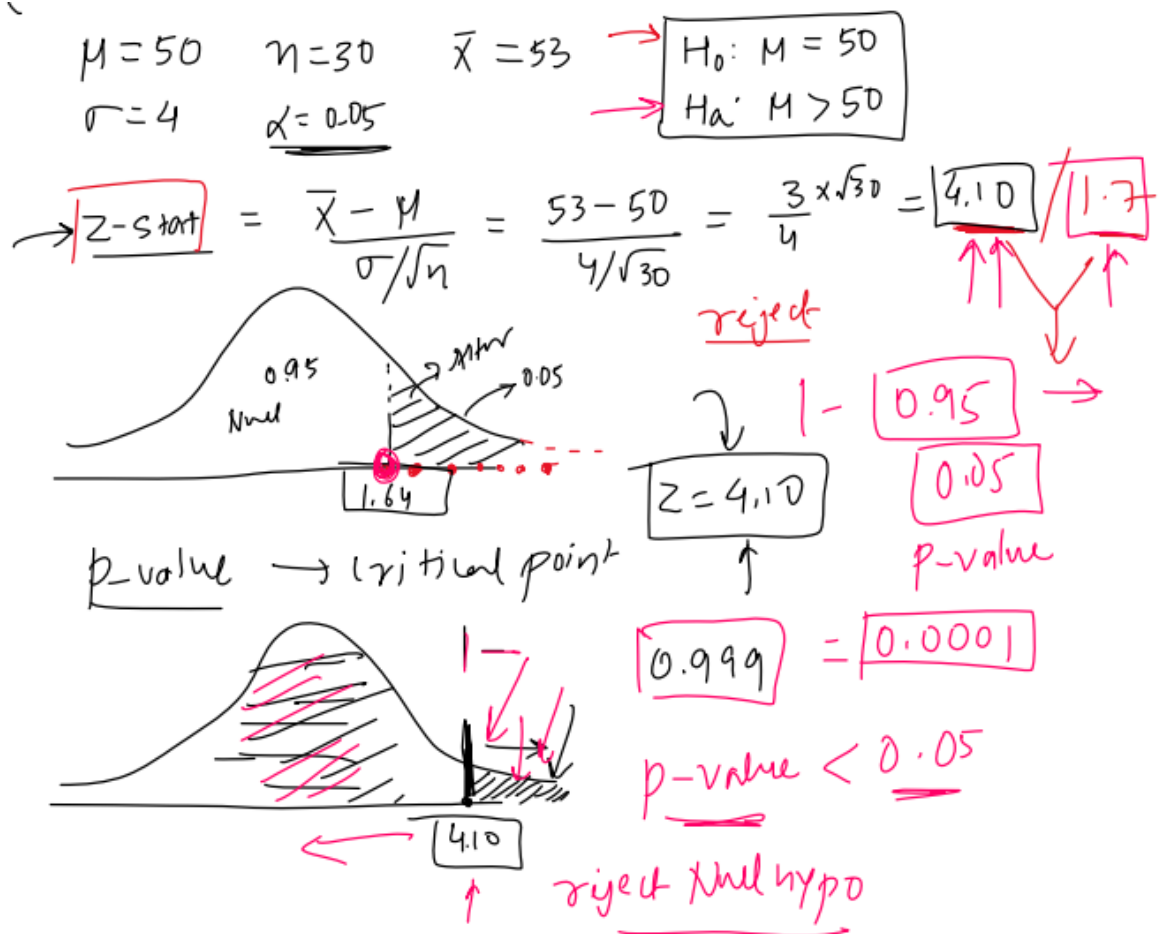 μ = 50 n = 30 x̄ = 53
σ = 4 α = 0.05
H₀: M = 50
Ha: M > 50
Z-Stat = x̄ - μ / σ/√n = 53 - 50 / 4/√30 = 3/4 x √30 = 4.10 / 1.7
reject
0.95
Null
Alter
0.05
1.64
Z = 4.10
1 - 0.95
0.05
p-value
p-value → critical point
0.999 = 0.0001
1 -
4.10
p-value < 0.05
reject Null hypo